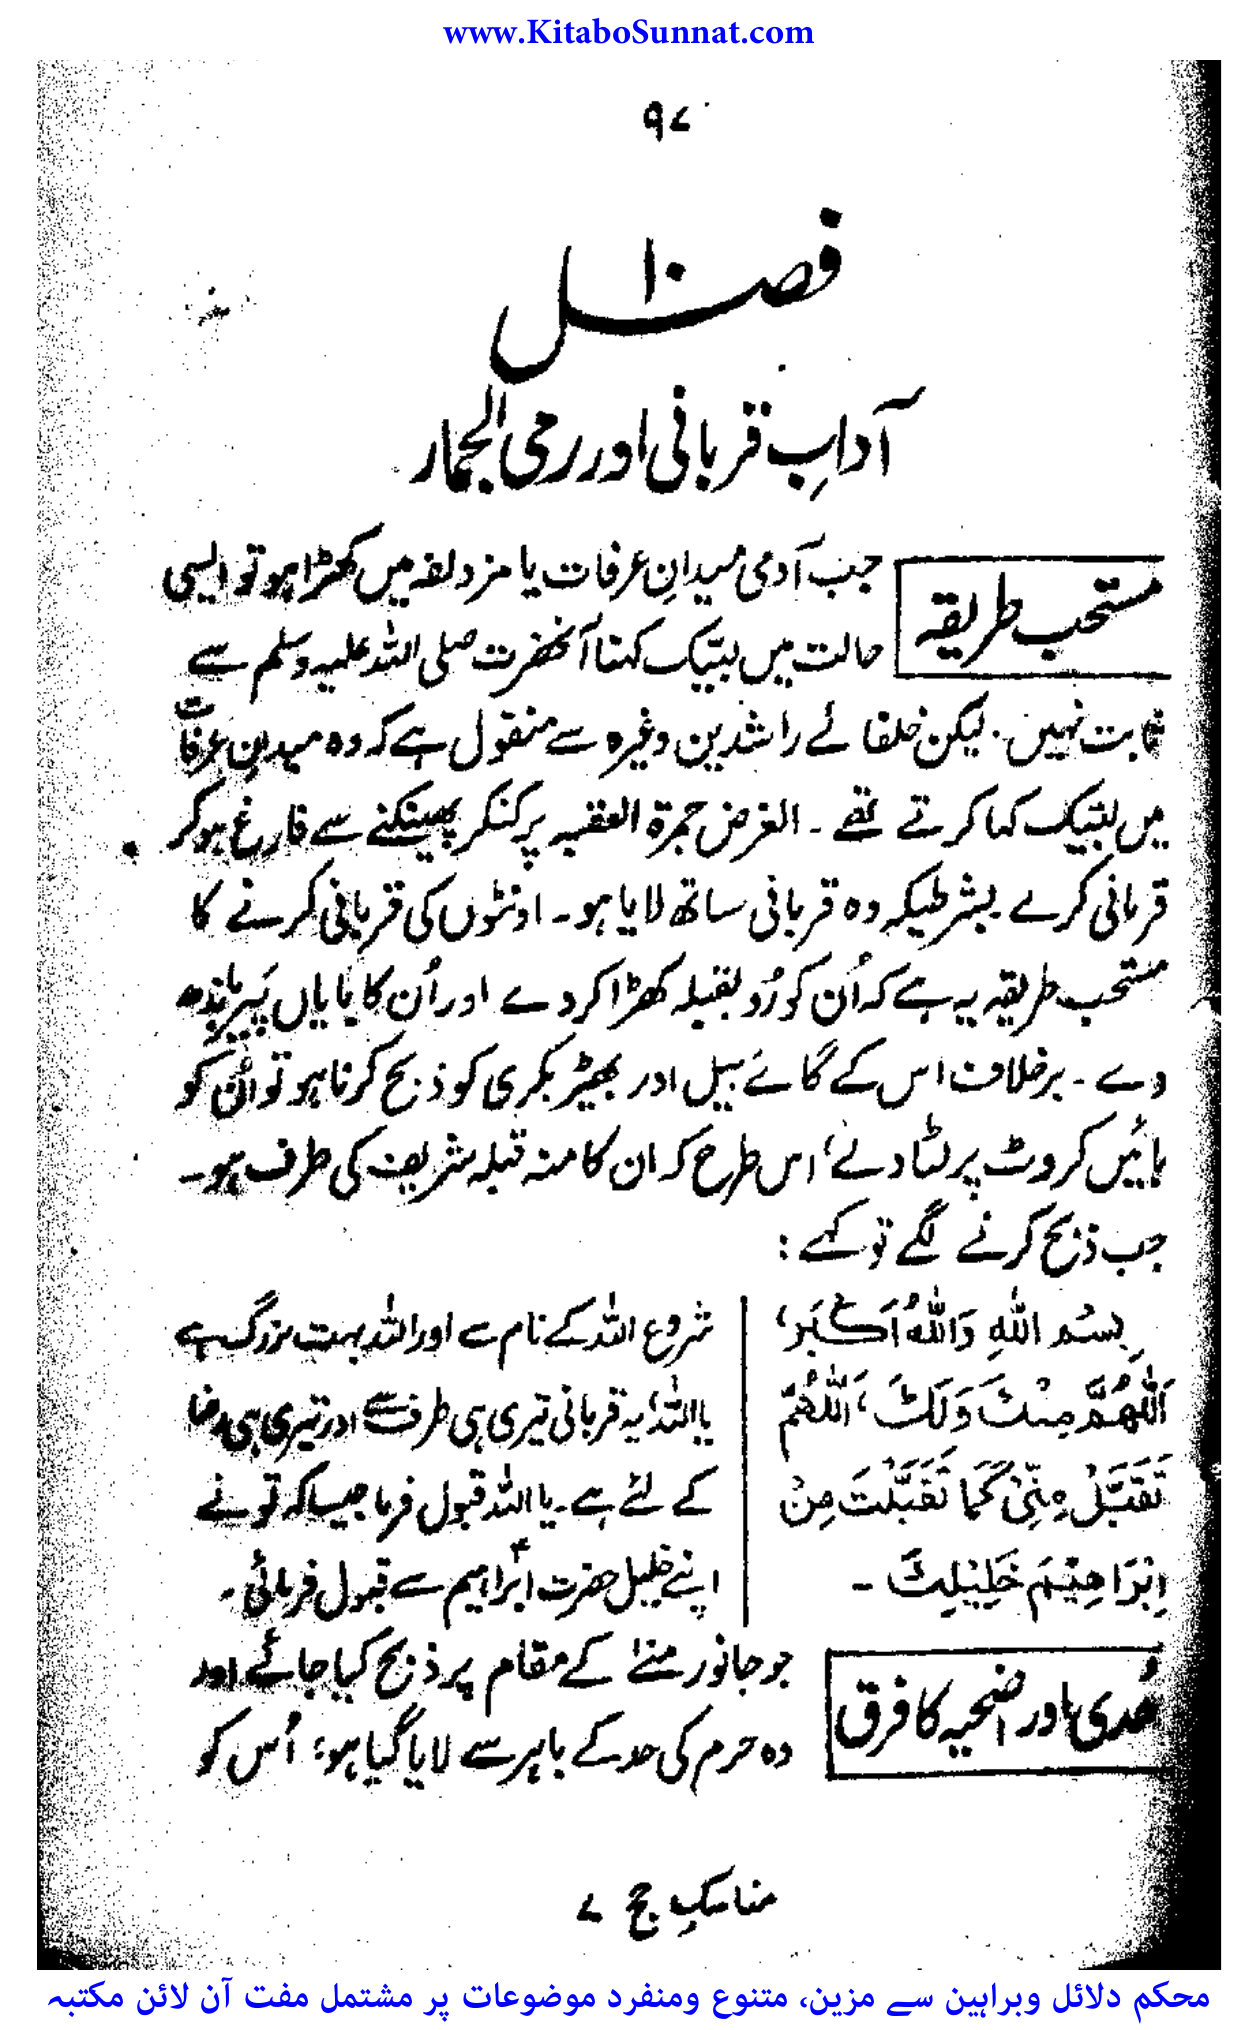 www.KitaboSunnat.com
۹۷
فصل ۱۰
آدابِ قربانی اور رمی الجمار
مستحب طریقہ
جب آدمی میدانِ عرفات یا مزدلفہ میں کھڑا ہو تو ایسی
حالت میں لبّیک کہنا آنحضرت صلی اللہ علیہ وسلم سے
ثابت نہیں۔ لیکن خلفائے راشدین وغیرہ سے منقول ہے کہ وہ میدانِ عرفات
میں لبّیک کہا کرتے تھے ۔ الغرض جمرۃ العقبہ پر کنکر پھینکنے سے فارغ ہو کر
قربانی کرے بشرطیکہ وہ قربانی ساتھ لایا ہو۔ اونٹوں کی قربانی کرنے کا
مستحب طریقہ یہ ہے کہ اُن کو رُو بقبلہ کھڑا کر دے اور اُن کا بایاں پَیر باندھ
دے ۔ برخلاف اس کے گائے بیل اور بھیڑ بکری کو ذبح کرنا ہو تو اُن کو
بائیں کروٹ پر لٹا دے، اس طرح کہ ان کا منہ قبلہ شریف کی طرف ہو۔
جب ذبح کرنے لگے تو کہے :
بِسْمِ اللّٰهِ وَاللّٰهُ اَكْبَر،
اَللّٰهُمَّ مِنْكَ وَلَكَ، اَللّٰهُمَّ
تَقَبَّلْ مِنِّىْ كَمَا تَقَبَّلْتَ مِنْ
اِبْرَاهِيْمَ خَلِيْلِكَ ۔
شروع اللہ کے نام سے اور اللہ بہت بزرگ ہے
یا اللہ، یہ قربانی تیری ہی طرف سے اور تیری ہی رضا
کے لئے ہے ۔ یا اللہ قبول فرما جیسا کہ تو نے
اپنے خلیل حضرت ابراہیمؑ سے قبول فرمائی ۔
ھدی اور اضحیہ کا فرق
جو جانور منےٰ کے مقام پر ذبح کیا جائے اور
وہ حرم کی حد کے باہر سے لایا گیا ہو؛ اُس کو
مناسکِ حج ۷
محکم دلائل وبراہین سے مزین، متنوع ومنفرد موضوعات پر مشتمل مفت آن لائن مکتبہ